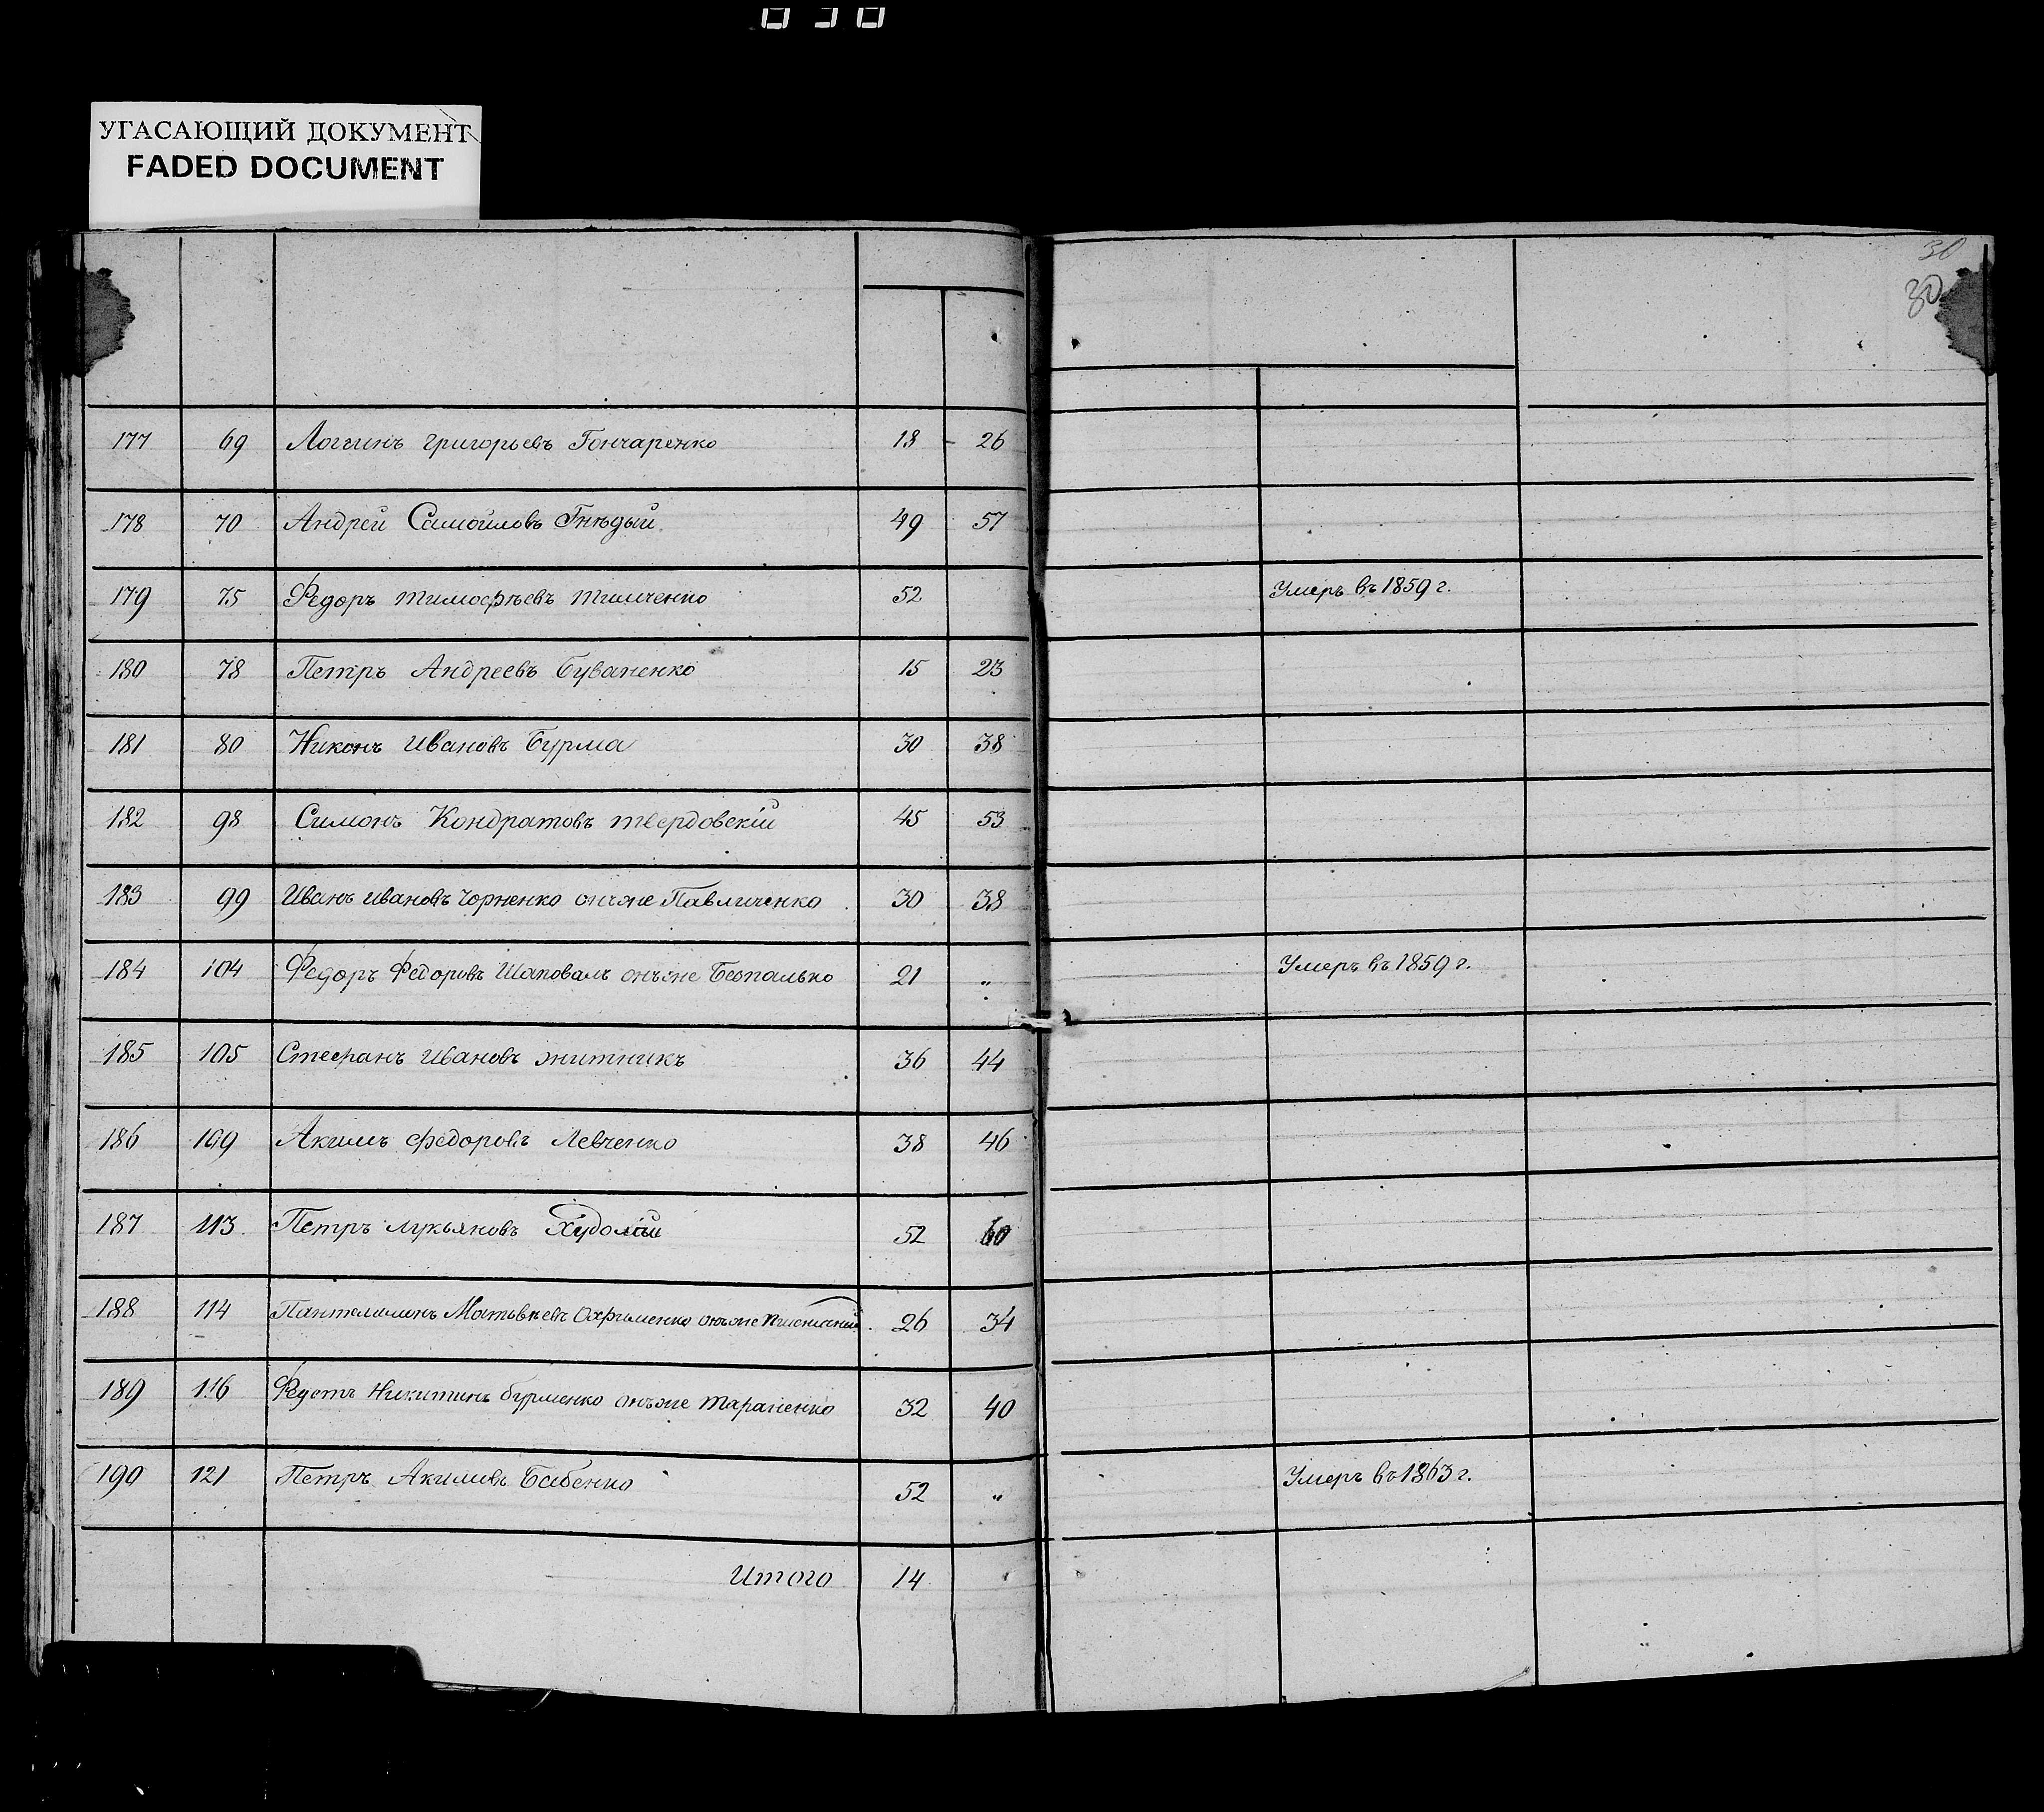 УГАСАЮЩИЙ ДОКУМЕНТ
FADED DOCUMENT
30
30
177 69 Логгинъ Григорьевъ Гончаренко 18 - 26
178 70 Андрей Самойловъ Гнѣдый 49 57
179 75 Федоръ Тимофѣевъ Тимченко 52 Умеръ въ 1859 г.
180 78 Петръ Андреевъ Буваненко 15 23
181 80 Никонъ Ивановъ Бурма 30 38
182 98 Симонъ Кондратовъ Твердовскій 45 53
183 99 Иванъ Ивановъ Чорненко онъже Павличенко 30 38
184 104 Федоръ Федоровъ Шаповалъ онъже Беспалько 21 „ Умеръ въ 1859 г.
185 105 Стефанъ Ивановъ Житникъ 36 44
186 109 Акимъ Федоровъ Левченко 38 46
187 113 Петръ Лукьяновъ Худолій 52 60
188 114 Пантелимонъ Матвѣевъ Охрименко онъже 26 34
189 116 Федотъ Никитинъ Бурменко онъже Тараненко 32 40
190 121 Петръ Акимовъ Бабенко 52 „ Умеръ въ 1863 г.
Итого 14